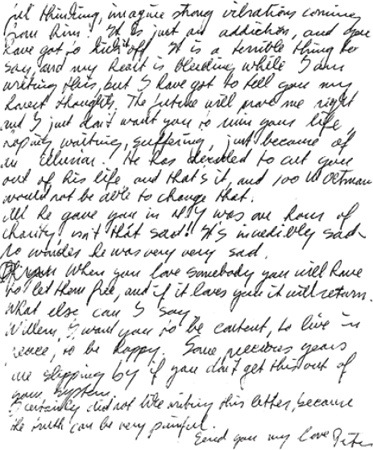 just thinking, imagine strong vibrations coming
from him. It is just an addiction, and you
have got to kick it off. It is a terrible thing to
say, and my heart is bleeding while I am
writing this, but I have got to tell you my
honest thoughts. The future will prove me right
and I just don't want you to ruin your life,
hoping, waiting, suffering, just because of
an illusion. He has decided to cut you
out of his life and that's it, and 100
would not be able to change that.
All he gave you in was one hour of
charity, isn't that sad! It's incredibly sad
No wonder he was very very sad.
When you love somebody you will have
to let them free, and if it loves you it will return.
What else can I say
Willem, I want you to be content, to live in
peace, to be happy. Some precious years
are slipping by if you don't get this out of
your system.
I certainly did not like writing this letter, because
the truth can be very painful.
Send you my love